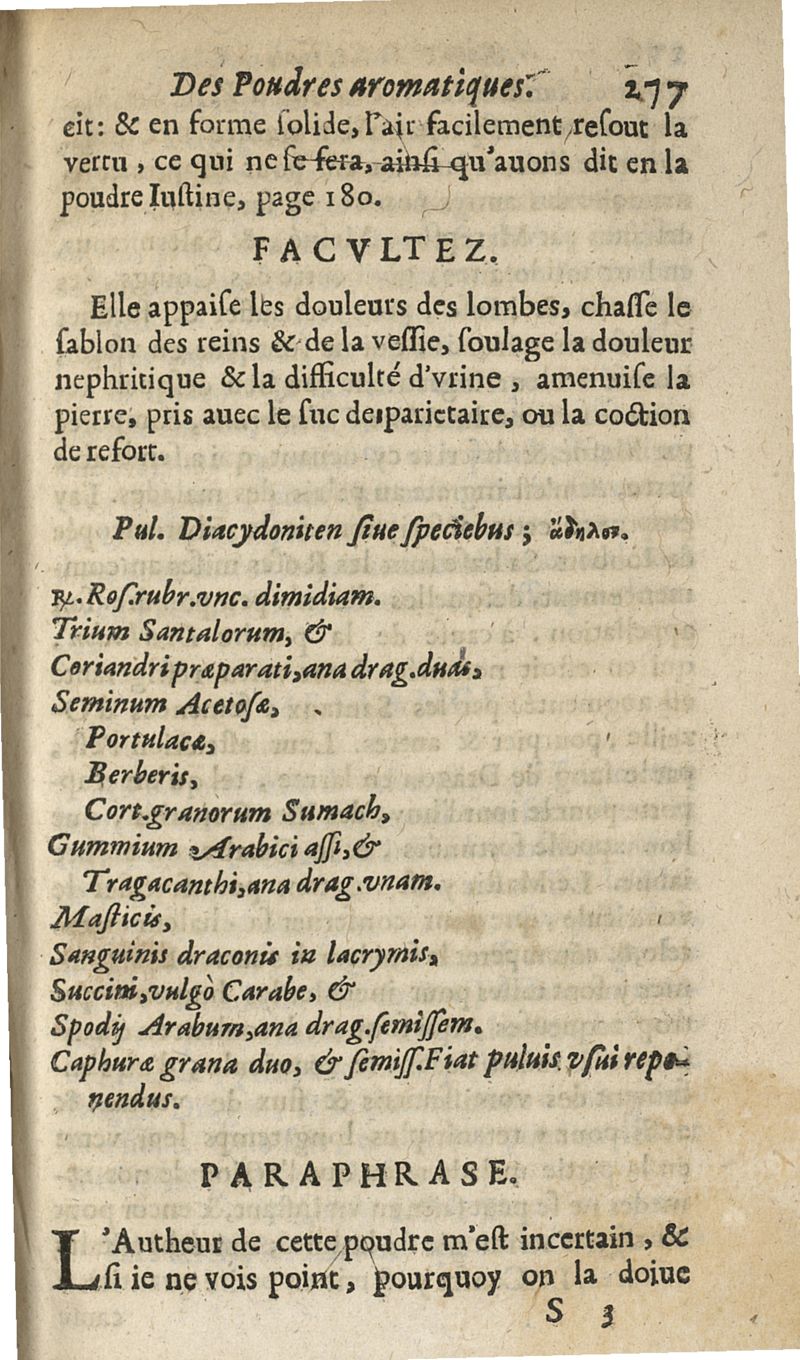 Des Poudres aromatiques. 277
eit: & en forme ſolide, l'air facilement reſout la
vertu, ce qui ne ſe fera, ainſi qu'auons dit en la
poudre Iuſtine, page 180.
FACVLTEZ.
Elle appaiſe les douleurs des lombes, chaſſe le
ſablon des reins & de la veſſie, ſoulage la douleur
nephritique & la difficulté d'vrine, amenuiſe la
pierre, pris auec le ſuc de parietaire, ou la coction
de refort.
Pul. Diacydoniten ſiue ſpeciebus; ἄδηλον.
℞. Roſ. rubr. vnc. dimidiam.
Trium Santalorum, &
Coriandri præparati, ana drag. duas,
Seminum Acetoſæ,
Portulacæ,
Berberis,
Cort. granorum Sumach,
Gummium Arabici aſſi, &
Tragacanthi, ana drag. vnam.
Maſticis,
Sanguinis draconis in lacrymis,
Succini, vulgò Carabe, &
Spodij Arabum, ana drag. ſemiſſem.
Caphuræ grana duo, & ſemiſſ. Fiat puluis vſui repo-
nendus.
PARAPHRASE.
L'Autheur de cette poudre m'eſt incertain, &
ſi ie ne vois point, pourquoy on la doiue
S 3